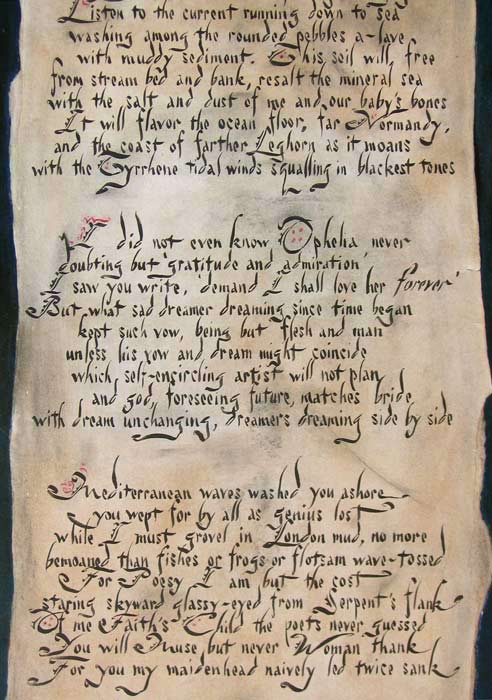 Listen to the current running down to sea
washing among the rounded pebbles a-lave
with muddy sediment. This soil will, free
from stream bed and bank, resalt the mineral sea
with the salt and dust of me and our baby's bones
It will flavor the ocean floor, far Normandy,
and the coast of farther Leghorn as it moans
with the Tyrrhene tidal winds squalling in blackest tones
I did not even know Ophelia never
doubting but 'gratitude and admiration'
I saw you write, 'demand I shall love her forever'
But what sad dreamer dreaming since time began
kept such vow, being but flesh and man
unless his vow and dream might coincide
which self-encircling artist will not plan
and god, foreseeing future, matches bride
with dream unchanging, dreamers dreaming side by side
Mediterranean waves washed you ashore
you wept for by all as genius lost
while I must grovel in London mud, no more
bemoaned than fishes or frogs or flotsam wave-tossed
For Poesy I am but the cost
staring skyward glassy-eyed from Serpent's flank
Of me Faith's Child the poets never guessed
You will Muse but never Woman thank
For you my maidenhead naively led twice sank